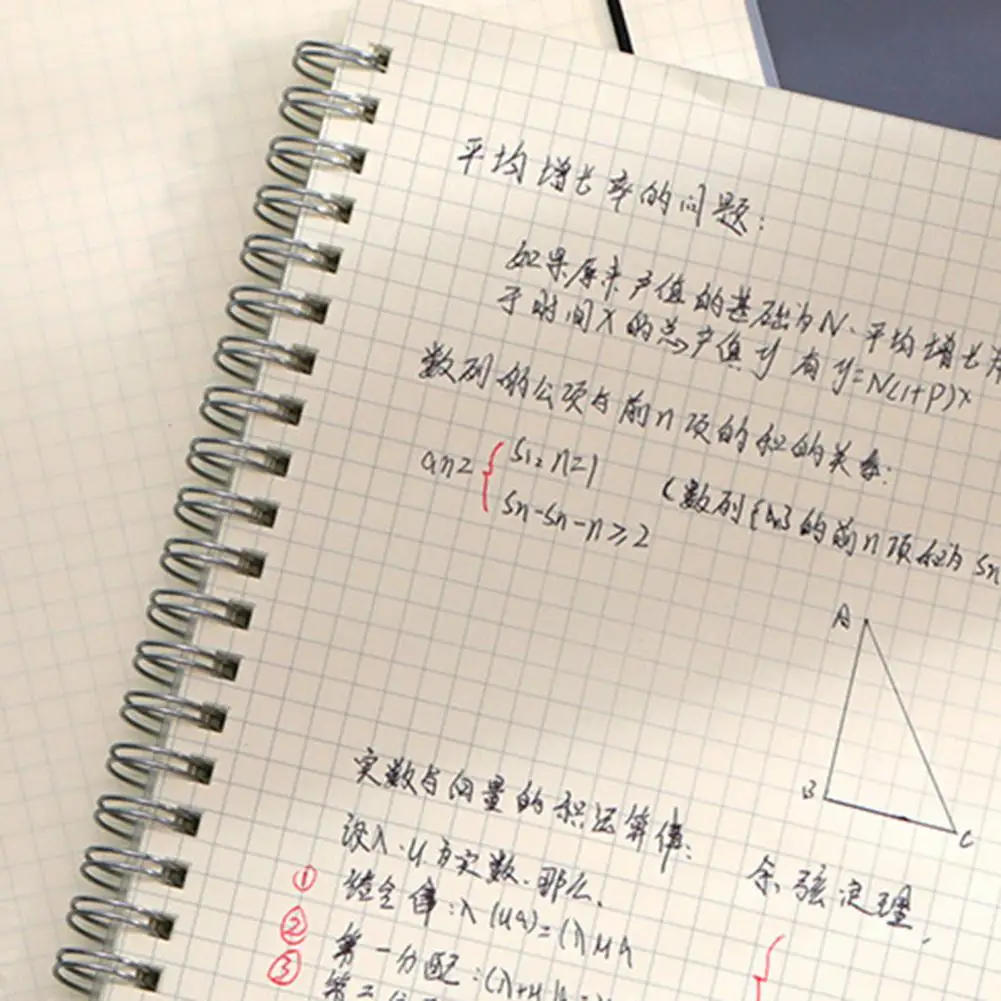 平均增长率的问题:
如果原来产值的基础为N.平均增长率
于时间X的总产值y 有y=N(1+P)x
数列的公项与前n项的和的关系:
an= { S1, n=1
Sn-Sn-n≥2
(数列{an}的前n项和为Sn
A
B
C
实数与向量的积运算律:
设λ.u为实数.那么,
① 结合律:λ(ua)=(λua
② 第一分配:(λ+u)
③ 第二分
余弦定理,